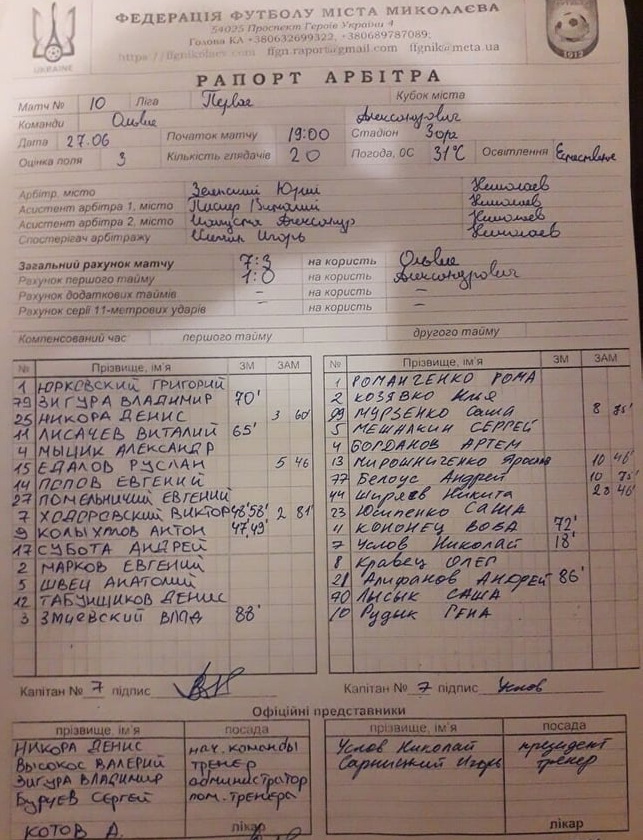 ФЕДЕРАЦІЯ ФУТБОЛУ МІСТА МИКОЛАЄВА
54025 Проспект Героїв України 4
Голова КА +380632699322, +380689787089;
ffgn.raport@gmail.com ffgnik@meta.ua
UKRAINE
РАПОРТ АРБІТРА
Матч № 10 Ліга Первая Кубок міста
Команди Ольвия Александрович
Дата 27.06 Початок матчу 19:00 Стадіон Заря
Оцінка поля 3 Кількість глядачів 20 Погода, 0С 31°C Освітлення
Арбітр, місто Юрий Николаев
Асистент арбітра 1, місто Виталий Николаев
Асистент арбітра 2, місто Александр Николаев
Спостерігач арбітражу Игорь Николаев
Загальний рахунок матчу 7:3 на користь Ольвия
Рахунок першого тайму 1:0 на користь Александрович
Рахунок додаткових таймів – на користь –
Рахунок серії 11-метрових ударів – на користь –
Компенсований час першого тайму другого тайму
№ Прізвище, ім'я ЗМ ЗАМ
1 ЮРКОВСКИЙ ГРИГОРИЙ
79 ЗИГУРА ВЛАДИМИР 70'
25 НИКОРА ДЕНИС 3 60'
11 ЛИСАЧЕВ ВИТАЛИЙ 65'
4 МЫЦИК АЛЕКСАНДР
15 ЕДАЛОВ РУСЛАН 5 46
14 ПОПОВ ЕВГЕНИЙ
27 ПОМЕЛЬНИЧИЙ ЕВГЕНИЙ
7 ХОДОРОВСКИЙ ВИКТОР 48'58' 2 81'
9 АНТОН 47',49'
17 СУБОТА АНДРЕЙ
2 МАРКОВ ЕВГЕНИЙ
5 ШВЕЦ АНАТОЛИЙ
12 ТАБУНЩИКОВ ДЕНИС
3 ЗМИЕВСКИЙ ВЛАД 88'
№ Прізвище, ім'я ЗМ ЗАМ
1 РОМАНЧЕНКО РОМА
2 КОЗЯВКО Илья
99 МУРЗЕНКО Саша 8 75'
5 МЕШНАКИН СЕРГЕЙ
4 БОГДАНОВ АРТЕМ
13 МИРОШНИЧЕНКО 10 46'
77 Белоус Андрей 10 75'
44 Ширяев Никита 28 46'
23 САША
11 КОНОНЕЦ ВОВА 72'
7 Услов Николай 18'
8 Кравец ОЛЕГ
28 Алифанов АНДРЕЙ 86'
90 ЛЫСЫК САША
10 Рудык ГЕНА
Капітан № 7 підпис
Капітан № 7 підпис Услов
Офіційні представники
прізвище, ім'я посада
НИКОРА ДЕНИС нач. команды
ВЫСОКОС ВАЛЕРИЙ тренер
ЗИГУРА ВЛАДИМИР администратор
БУРЧЕВ СЕРГЕЙ пом. тренера
КОТОВ А. лікар
прізвище, ім'я посада
Услов Николай президент
Игорь тренер
лікар